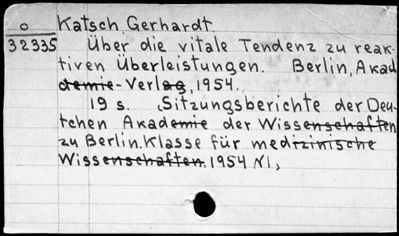 o Katsch, Gerhardt.
32335 Über die vitale Tendenz zu reak-
tiven Überleistungen. Berlin, Akad
demie-Verlag, 1954.
19 s. (Sitzungsberichte der Deu-
tchen Akademie der Wissenschaften
zu Berlin. Klasse für medrzinische
Wissenschaften. 1954 N1,